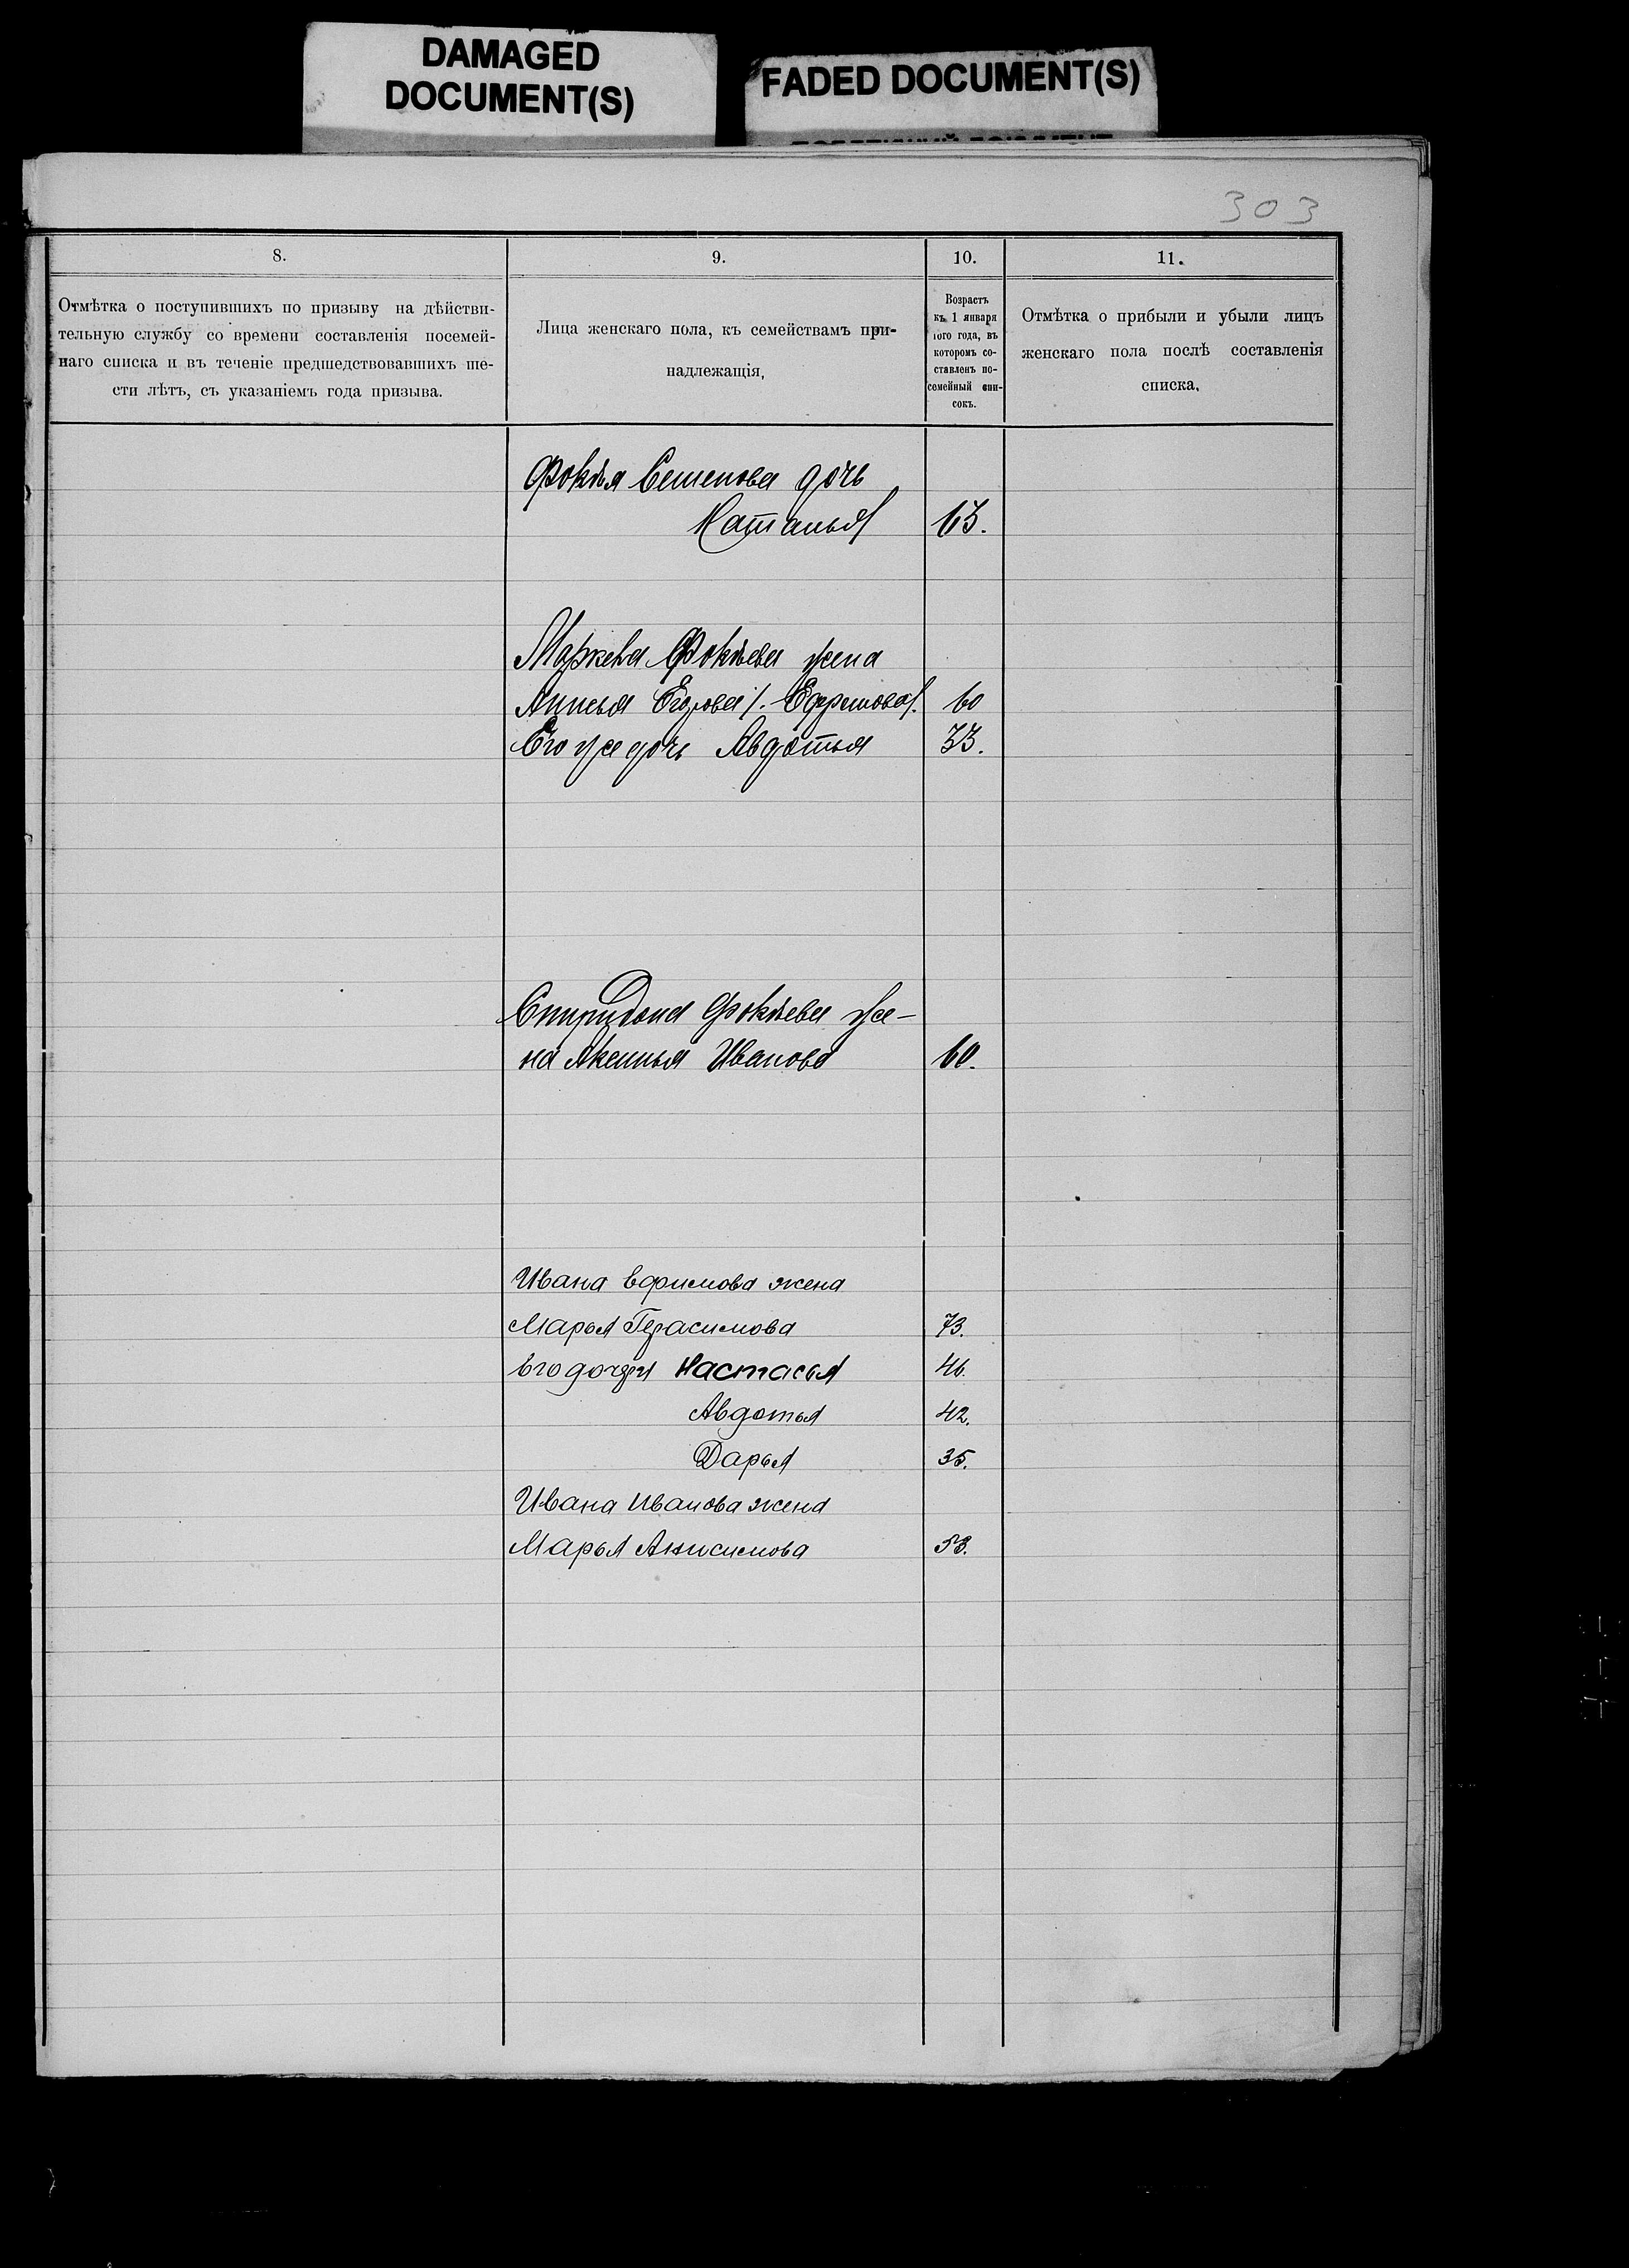 DAMAGED
DOCUMENT(S)
FADED DOCUMENT(S)
303
8.
9.
10.
11.
Отмѣтка о поступившихъ по призыву на дѣйстви-
тельную службу со времени составленія посемей-
наго списка и въ теченіе предшедствовавшихъ ше-
сти лѣтъ, съ указаніемъ года призыва.
Лица женскаго пола, къ семействамъ при-
надлежащія,
Возрастъ
къ 1 января
того года, въ
которомъ со-
ставленъ по-
семейный спи-
сокъ.
Отмѣтка о прибыли и убыли лицъ
женскаго пола послѣ составленія
списка.
Фокѣя Семенова дочь
Наталья 63.
Маркела Фокѣева жена
Анисья Егорова /. Ефремова/. 60
Его же дочь Авдотья 33.
Спиридона Фокѣева же-
на Аксинья Иванова 60.
Ивана Ефимова жена
Марья Герасимова 73.
Его дочери Настасья 46.
Авдотья 42.
Дарья 35.
Ивана Иванова жена
Марья Анисимова 53.